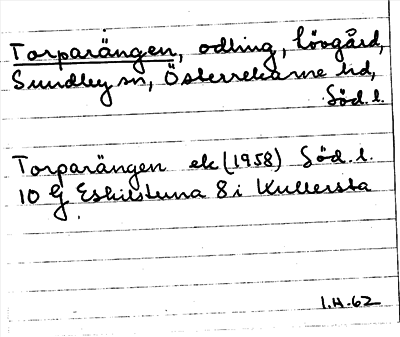 Torparängen, odling, Lövgård,
Sundby sn, Österrekarne hd,
Söd. l.
Torparängen ek (1958) Söd. l.
10 G Eskilstuna 8 i Kullersta
I.H.-62